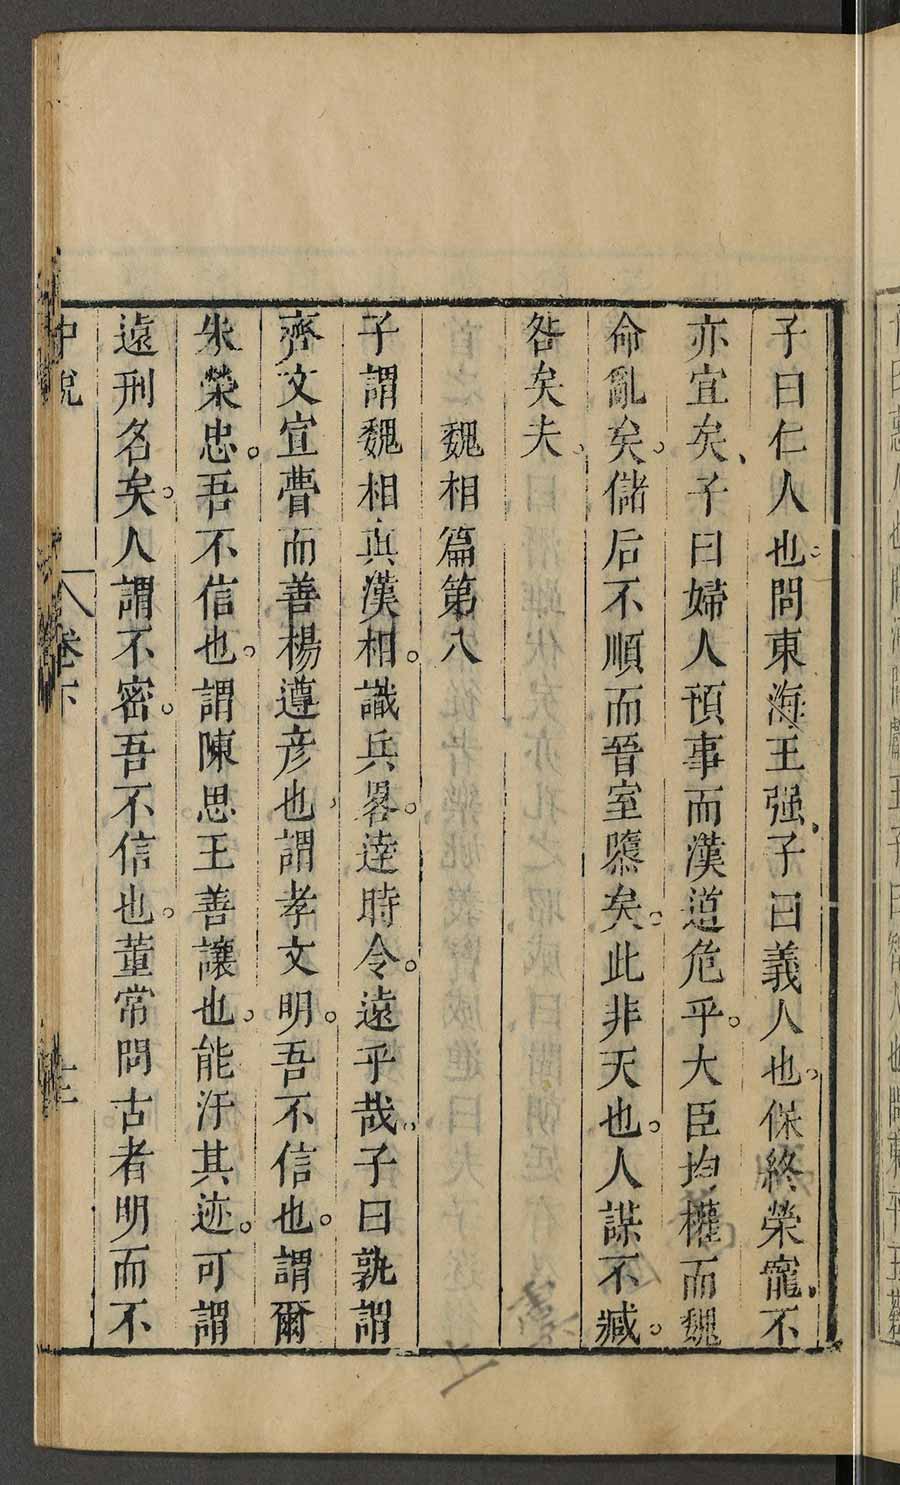 子曰仁人也問東海王强子曰義人也保終榮寵不
亦宜矣子曰婦人預事而漢道危乎大臣均權而魏
命亂矣儲后不順而晉室隳矣此非天也人謀不臧
咎矣夫
魏相篇第八
子謂魏相真漢相識兵畧達時令遠乎哉子曰孰謂
齊文宣瞢而善楊遵彥也謂孝文明吾不信也謂爾
朱榮忠吾不信也謂陳思王善讓也能汙其迹可謂
遠刑名矣人謂不密吾不信也董常問古者明而不
中說
卷下